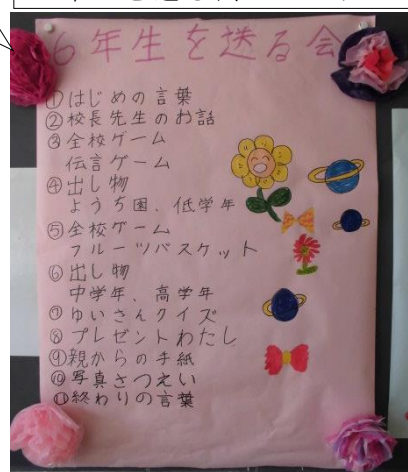 6年生を送る会
①はじめの言葉
②校長先生のお話
③全校ゲーム
伝言ゲーム
④出し物
ようち園、低学年
⑤全校ゲーム
フルーツバスケット
⑥出し物
中学年、高学年
⑦ゆいさんクイズ
⑧プレゼントわたし
⑨親からの手紙
⑩写真さつえい
⑪終わりの言葉